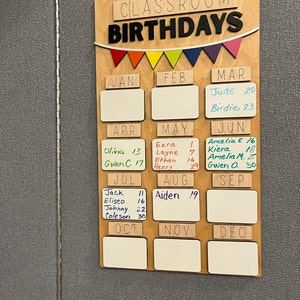 CLASSROOM
BIRTHDAYS
JAN FEB MAR
Jude 20
Birdie 23
APR MAY JUN
Olivia 13
Gwen C. 17
Ezra 1
Layne 7
Ethan 16
Henry 29
Amelia E 16
Kiera 18
Amelia M. 25
Gwen O. 30
JUL AUG SEP
Jack 11
Eliseo 16
Johnny 22
Coleson 30
Aiden 19
OCT NOV DEC